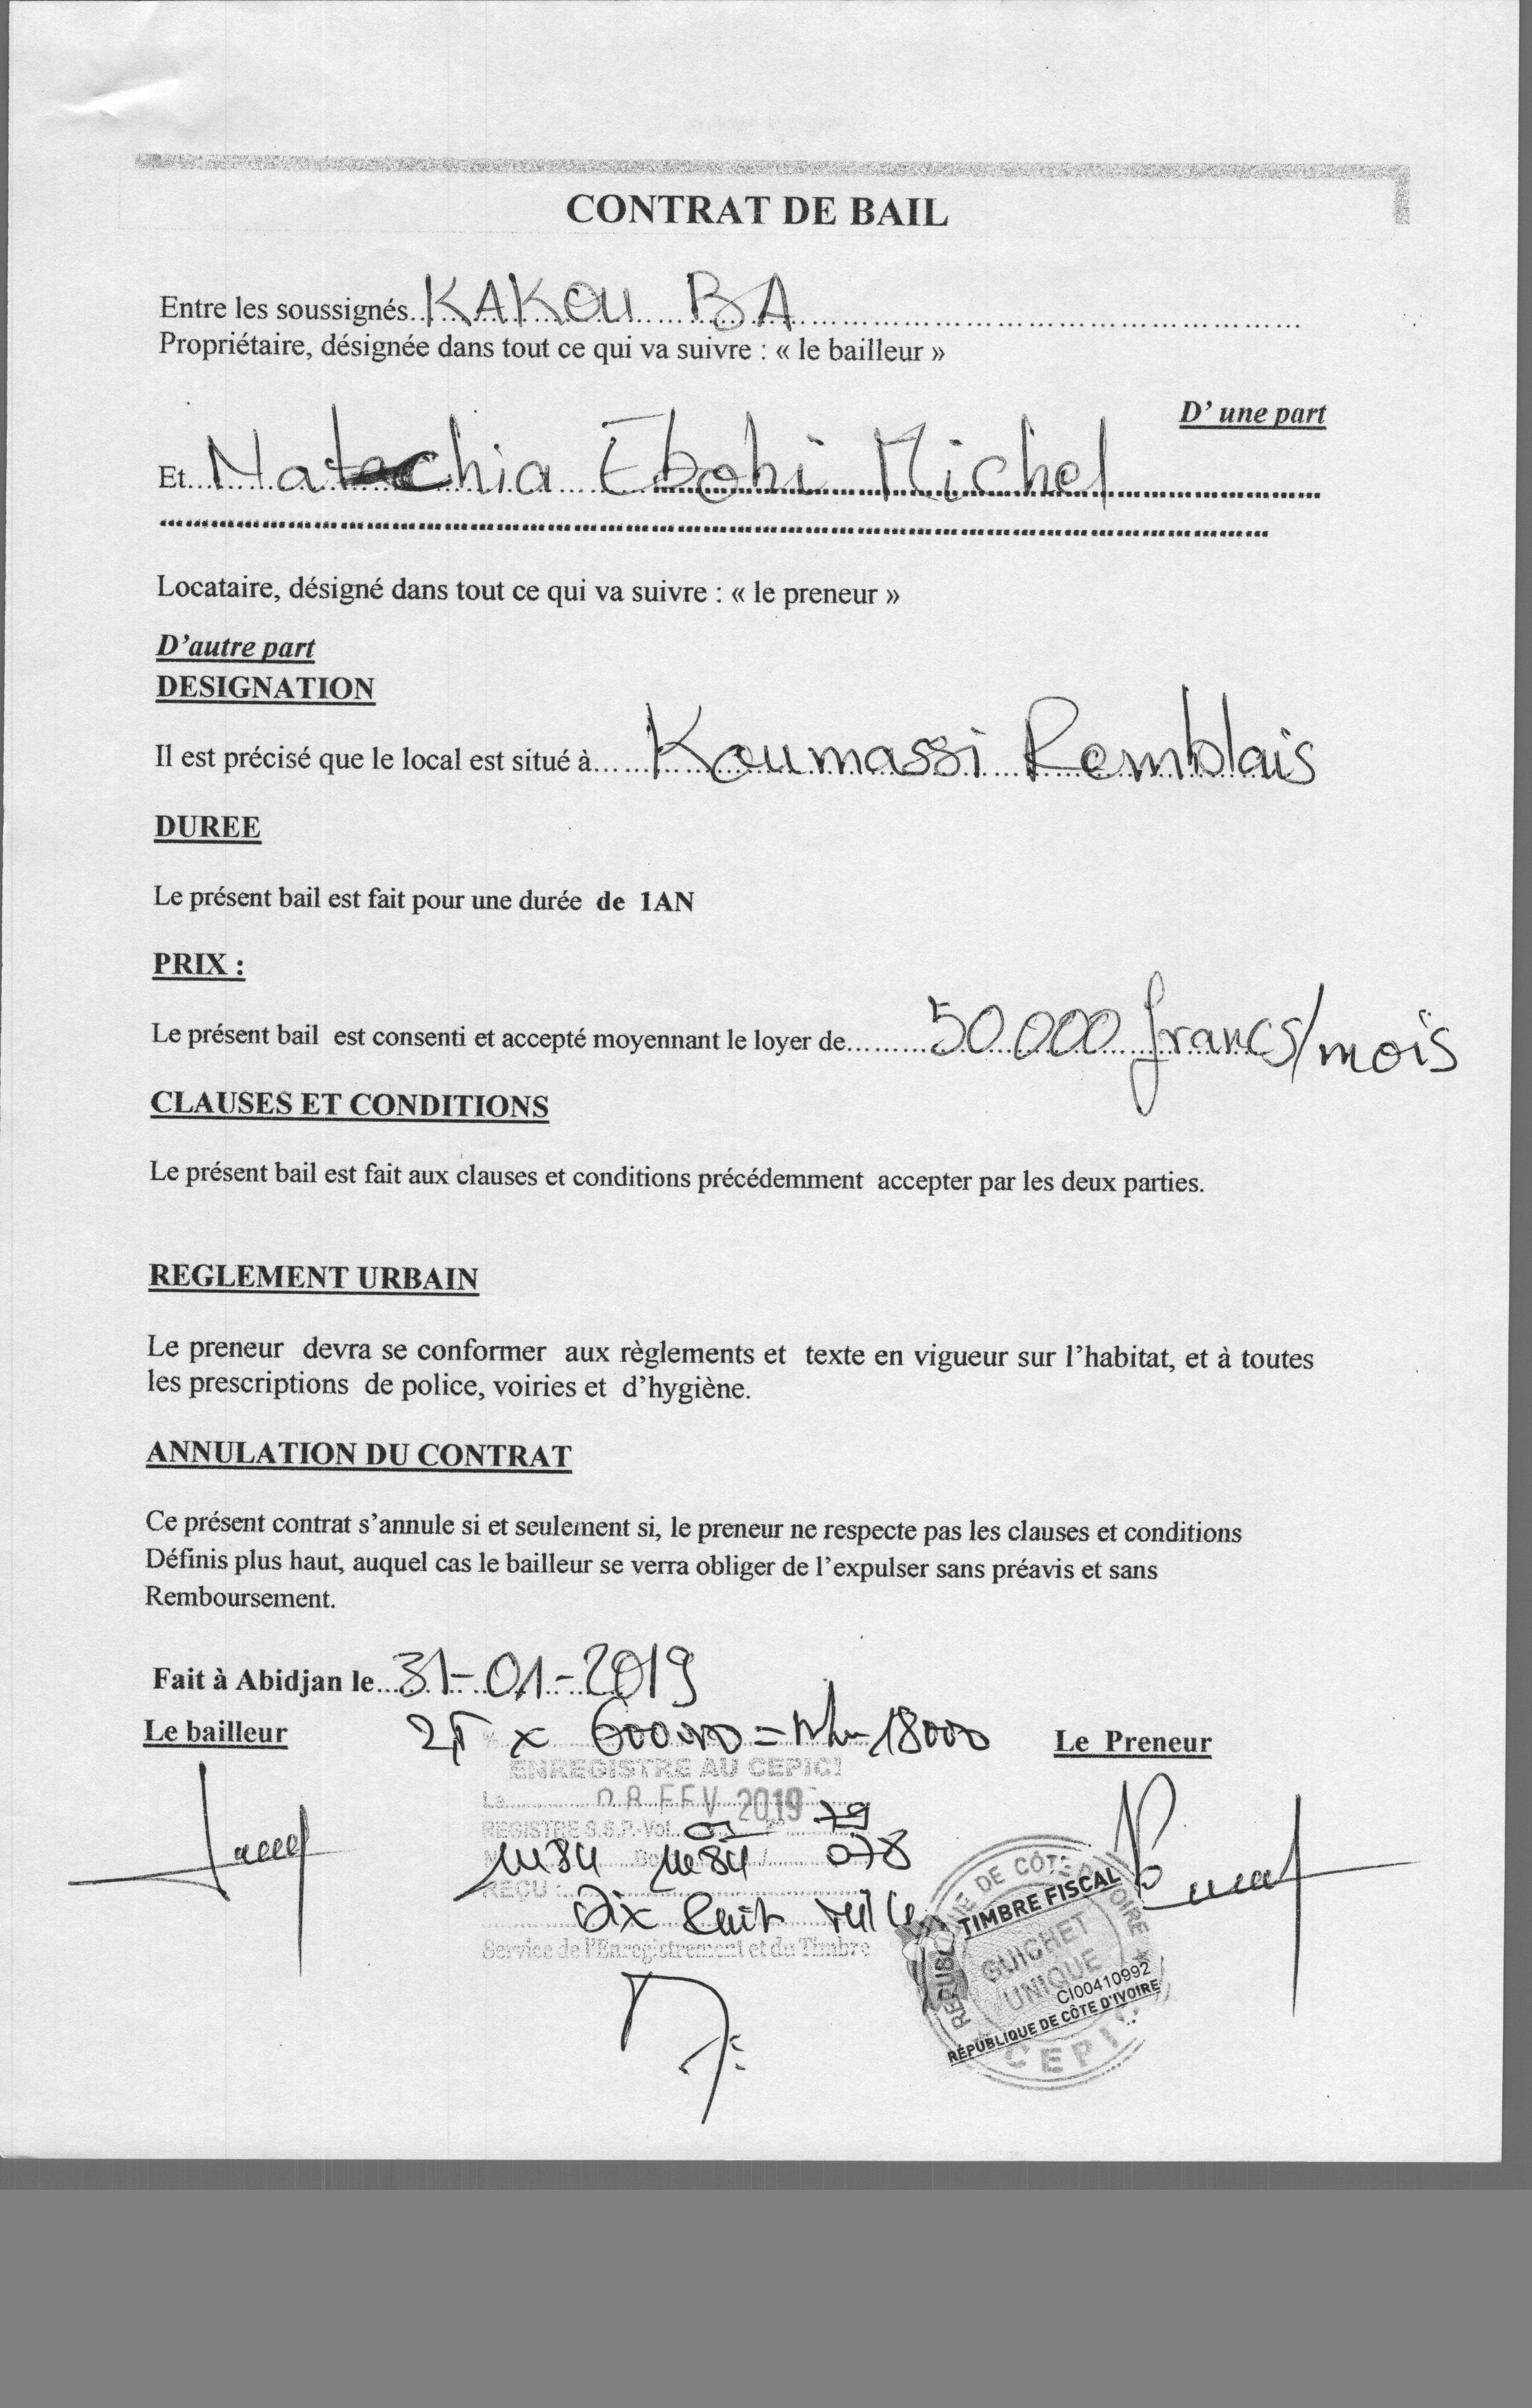 CONTRAT DE BAIL
Entre les soussignés..KAKOU BA
Propriétaire, désignée dans tout ce qui va suivre : « le bailleur »
D' une part
Et...Natachia Ebohi Michel
Locataire, désigné dans tout ce qui va suivre : « le preneur »
D'autre part
DESIGNATION
Il est précisé que le local est situé à...Koumassi Remblais
DUREE
Le présent bail est fait pour une durée de 1AN
PRIX :
Le présent bail est consenti et accepté moyennant le loyer de...50.000 francs/mois
CLAUSES ET CONDITIONS
Le présent bail est fait aux clauses et conditions précédemment accepter par les deux parties.
REGLEMENT URBAIN
Le preneur devra se conformer aux règlements et texte en vigueur sur l'habitat, et à toutes
les prescriptions de police, voiries et d'hygiène.
ANNULATION DU CONTRAT
Ce présent contrat s'annule si et seulement si, le preneur ne respecte pas les clauses et conditions
Définis plus haut, auquel cas le bailleur se verra obliger de l'expulser sans préavis et sans
Remboursement.
Fait à Abidjan le...31-01-2019
Le bailleur
x 600000 = 18000
Le Preneur
ENREGISTRE AU CEPICI
Le 08 FEV 2019
REGISTRE S.S.P.-Vol. 79
078
REÇU :
Dix huit mille
Service de l'Enregistrement et du Timbre
REPUBLIQUE DE CÔTE D'IVOIRE
TIMBRE FISCAL
GUICHET
UNIQUE
CI00410992
RÉPUBLIQUE DE CÔTE D'IVOIRE
CEPICI